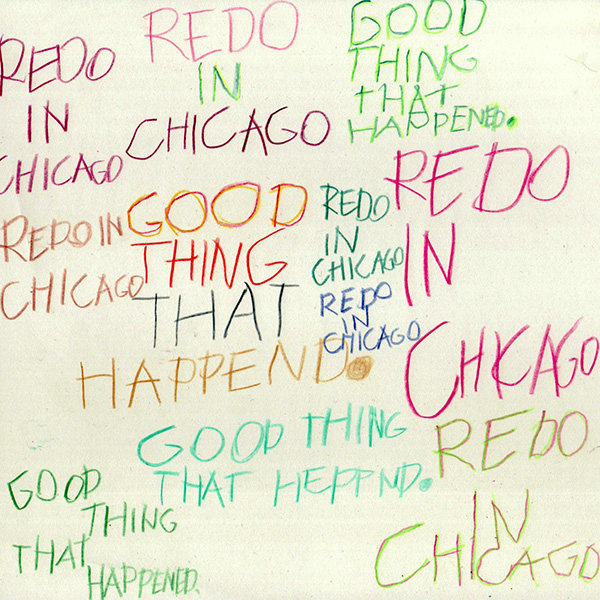 REDO
IN
CHICAGO
REDO
IN
CHICAGO
GOOD
THING
THAT
HAPPENED.
REDO IN
CHICAGO
GOOD
THING
THAT
HAPPEND.
REDO
IN
CHICAGO
REDO
IN
CHICAGO
REDO
IN
CHICAGO
GOOD THING
THAT HEPPND.
REDO
IN
CHICAGO
GOOD
THING
THAT
HAPPENED.